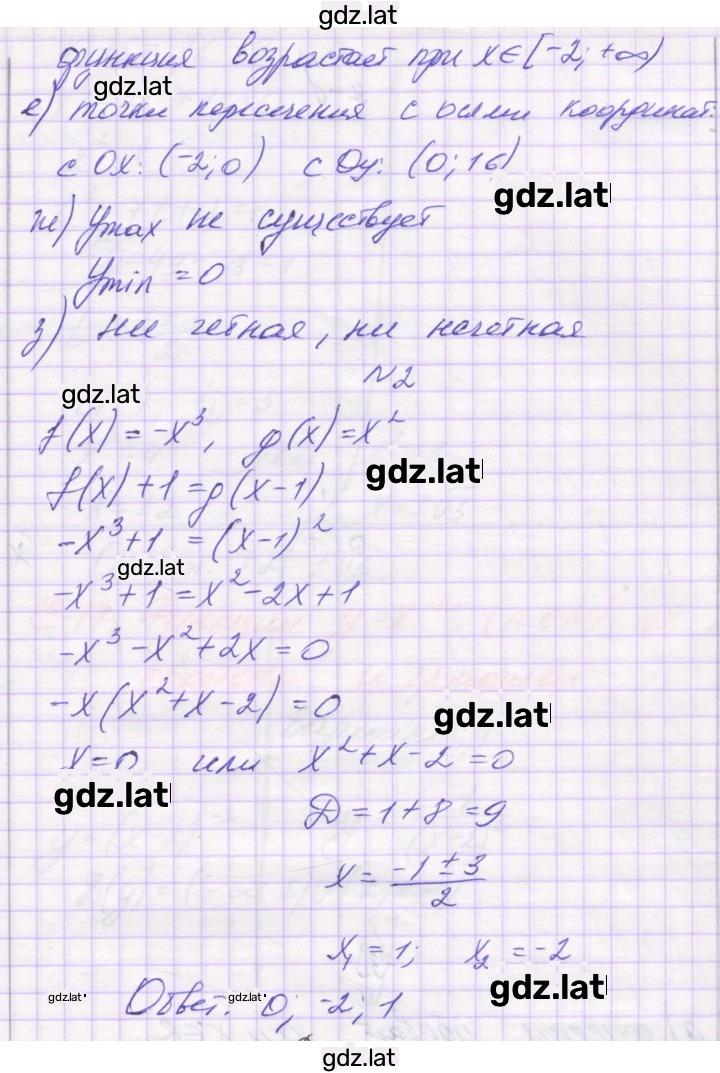 gdz.lat
функция возрастает при x∈[-2; +∞)
gdz.lat
е) точки пересечения с осями координат:
с Ox: (-2; 0) с Oy: (0; 16)
gdz.lat
ж) ymax не существует
ymin = 0
з) ни четная, ни нечетная
№2
gdz.lat
f(x) = -x³, g(x) = x²
gdz.lat
f(x) + 1 = g(x-1)
-x³ + 1 = (x-1)²
gdz.lat
-x³ + 1 = x² - 2x + 1
-x³ - x² + 2x = 0
-x(x² + x - 2) = 0
gdz.lat
x = 0 или x² + x - 2 = 0
gdz.lat
D = 1 + 8 = 9
x = (-1 ± 3)/2
x₁ = 1; x₂ = -2
gdz.lat
gdz.lat gdz.lat
Ответ: 0; -2; 1
gdz.lat